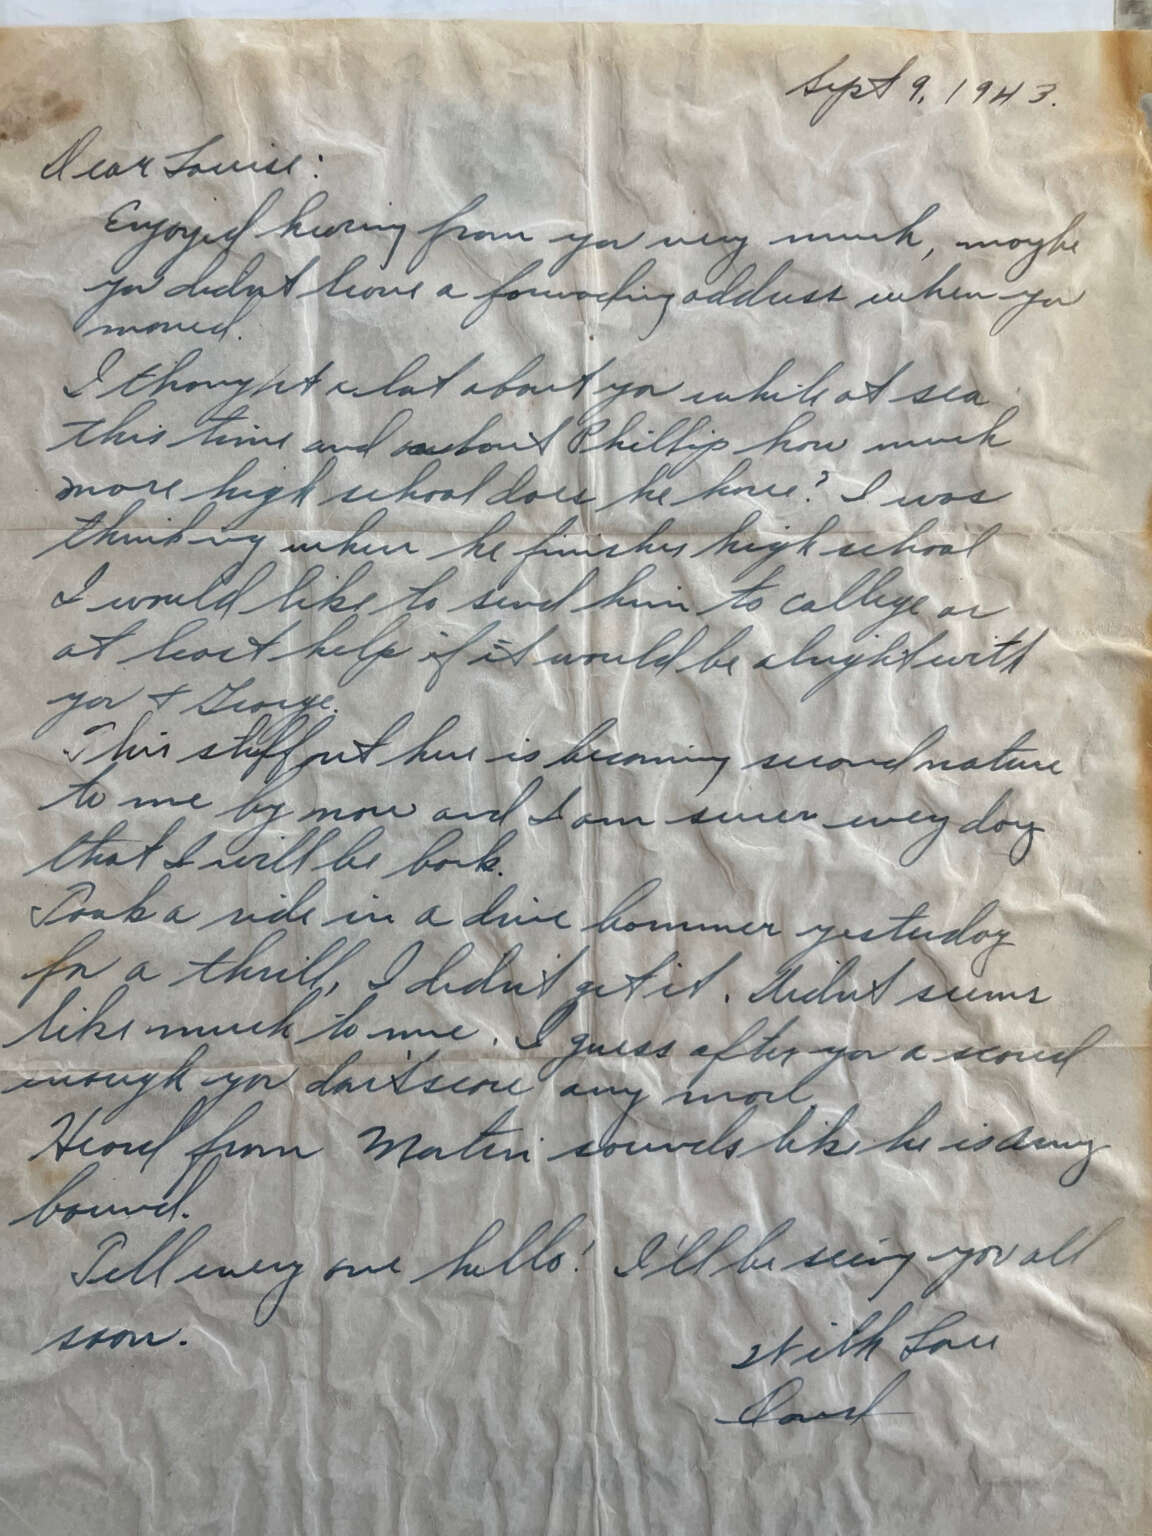 Sept 9, 1943.
Dear Louise:
Enjoyed hearing from you very much, maybe
you didn't leave a forwarding address when you
moved.
I thought a lot about you while at sea
this time and about Phillip how much
more high school does he have? I was
thinking when he finishes high school
I would like to send him to college or
at least help if it would be alright with
you + George.
This stuff out here is becoming second nature
to me by now and I am surer every day
that I will be back.
Took a ride in a dive bommer yesterday
for a thrill, I didn't get it. Didn't seem
like much to me. I guess after you a scared
enough you don't scare any more.
Heard from Martin sounds like he is Army
bound.
Tell every one hello! I'll be seeing you all
soon.
With Love
David